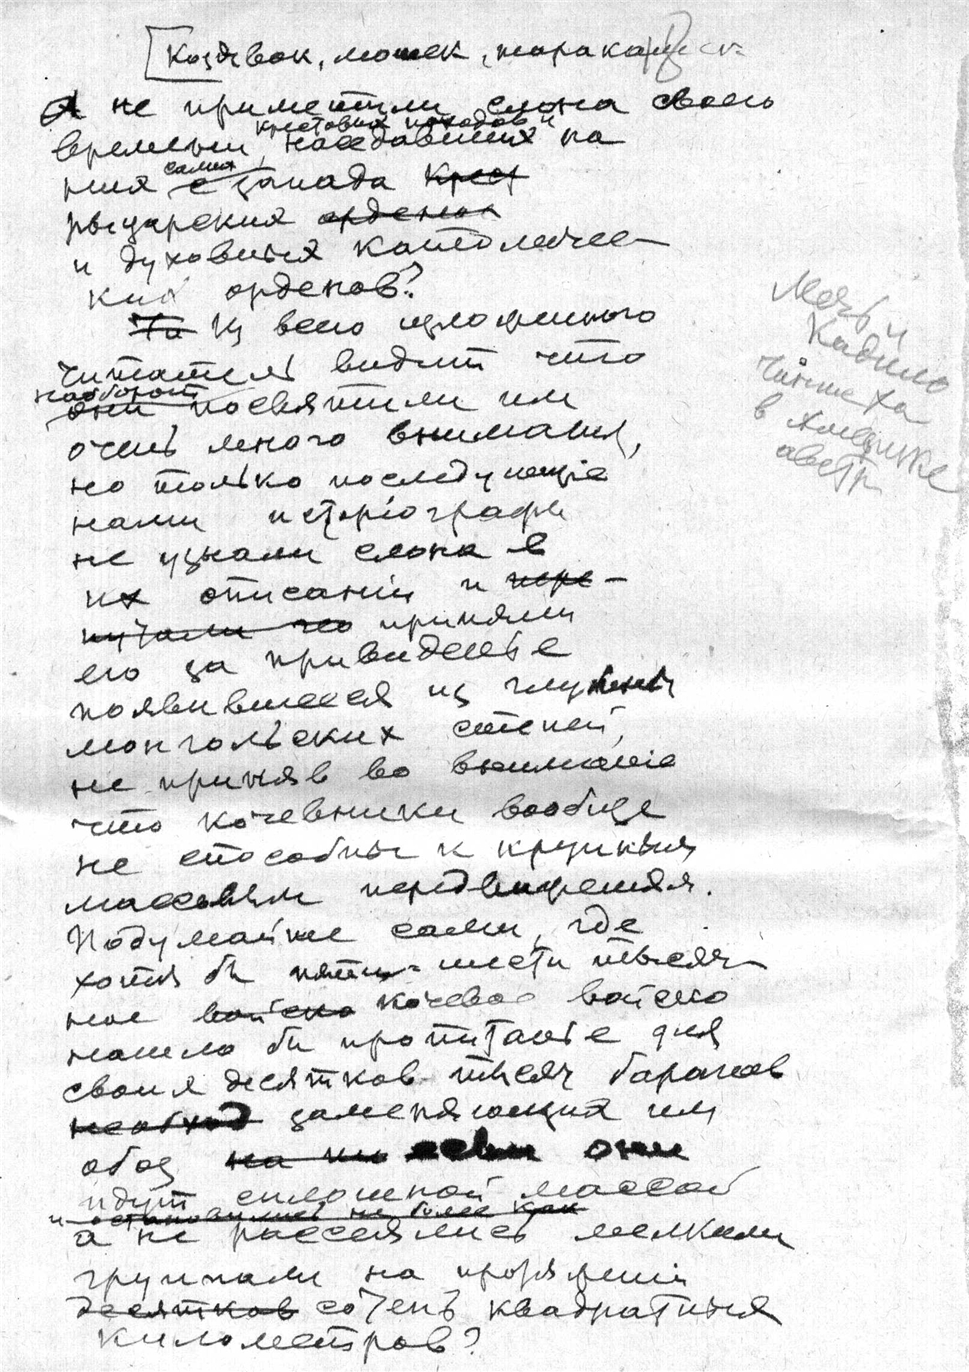 Козявок, мошек, тараканов
А не приметили слона своего
крестовых походов и
времени наседавших на
них самих с запада крест
рыцарских орденов
и духовных католичес-
ких орденов?
То Из всего изложенного
читатель видит что
наоборот
они посвятили им
очень много внимания,
но только последующіе
нами исторіографы
не узнали слона в
их описаніи и пере-
путали его приняли
его за привиденье
появившееся из глубины
монгольских степей,
не приняв во вниманіе
что кочевники вообще
не способны к крупным
массовым передвижениям.
Подумайте сами, где
хотя бы пяти-шести тысяч-
ное войско кочевое войско
нашло бы пропитанье для
своих десятков тысяч баранов
необход заменяющих им
обоз они
идут сплошной массой
и остановились не более как
а не рассеялись мелкими
группами на протяжении
десятков сотень квадратных
километров?
Мечь и
Кадило
в
австр